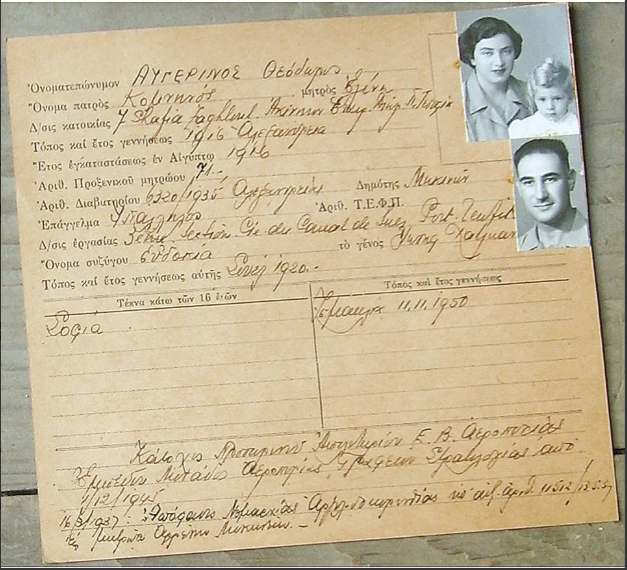 Ὀνοματεπώνυμον ΑΥΓΕΡΙΝΟΣ Θεόδωρος
Ὄνομα πατρὸς Κομνηνός μητρὸς Ἑλένη
Δ/σις κατοικίας 7 Safia Zaghloul
Τόπος καὶ ἔτος γεννήσεως 1916 Ἀλεξάνδρεια
Ἔτος ἐγκαταστάσεως ἐν Αἰγύπτῳ 1916
Ἀριθ. Προξενικοῦ μητρώου 71
Ἀριθ. Διαβατηρίου 6320/1935 Ἀλεξανδρείας Δημότης Μυκηνῶν
Ἐπάγγελμα Ὑπάλληλος Ἀριθ. Τ.Ε.Φ.Π.
Δ/σις ἐργασίας Section Cie du Canal de Suez Port-Teufik
Ὄνομα συζύγου Εὐδοκία τὸ γένος
Τόπος καὶ ἔτος γεννήσεως αὐτῆς Σουέζ 1920.-
Τέκνα κάτω τῶν 16 ἐτῶν Τόπος καὶ ἔτος γεννήσεως
Σοφία Ἰσμαηλία 11.11.1950
Κάτοχος Ἀπολυτηρίου Ε. Β. Ἀεροπορίας
Ἀεροπορίας, Γραφείου Στρατολογίας ἀπὸ
1/12/1945
16/9/1937. Ἀπόφασις Νομαρχίας Ἀργολιδοκορινθίας ὑπ' ἀριθ.
Μητρῶα Ἀρρένων Μυκηνῶν.-